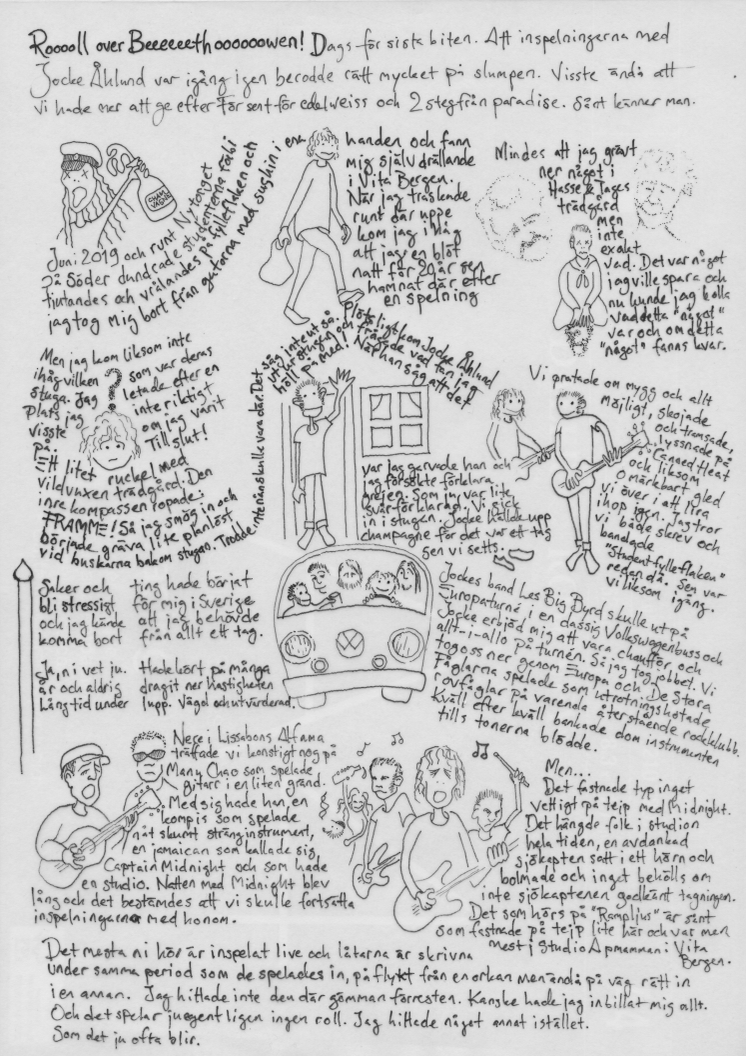 Rooooll over Beeeeeethoooooowen! Dags för sista biten. Att inspelningarna med
Jocke Åhlund var igång igen berodde rätt mycket på slumpen. Visste ändå att
vi hade mer att ge efter För sent för edelweiss och 2 steg från paradise. Sånt känner man.
CHAMPAGNE
Juni 2019 och runt Nytorget
på Söder dundrade studenterna förbi
tjutandes och vrålandes på fylleflaken och
jag tog mig bort från gatorna med sughin i ena
handen och fann
mig själv drällande
i Vita Bergen.
När jag traskade
runt där uppe
kom jag ihåg
att jag en blöt
natt för 20 år sen
hamnat där efter
en spelning
Mindes att jag grävt
ner något i
Hasse & Tages
trädgård
men
inte
exakt
vad. Det var något
jag ville spara och
nu kunde jag kolla
vad detta "något"
var och om detta
"något" fanns kvar.
Men jag kom liksom inte
ihåg vilken som var deras
stuga. Jag letade efter en
plats jag inte riktigt
visste om jag varit
på. Till slut!
Ett litet ruckel med
vildvuxen trädgård. Den
inre kompassen ropade:
FRAMME! Så jag smög in och
började gräva lite planlöst
vid buskarna bakom stugan. Trodde inte nån skulle vara där. Det
såg inte ut så.
Plötsligt kom Jocke Åhlund
ut ur stugan och frågade vad fan jag
höll på med! När han såg att det
var jag garvade han och
jag försökte förklara
grejen. Som ju var lite
svårförklarad. Vi gick
in i stugan. Jocke hällde upp
champagne för det var ett tag
sen vi setts.
Vi pratade om mygg och allt
möjligt, skojade
och tramsade,
lyssnade på
Canned Heat
och liksom
omärkbart gled
vi över i att lira
ihop igen. Jag tror
vi både skrev och
bandade
"Studentfylleflaken"
redan då. Sen var
vi liksom igång.
Saker och ting hade börjat
bli stressigt för mig i Sverige
och jag kände att jag behövde
komma bort från allt ett tag.
Ja, ni vet ju. Hade kört på många
år och aldrig dragit ner hastigheten
Lång tid under lupp. Vägd och utvärderad.
VW
Jockes band Les Big Byrd skulle ut på
Europaturné i en dassig Volkswagenbuss och
Jocke erbjöd mig att vara chaufför och
allt-i-allo på turnén. Så jag tog jobbet. Vi
tog oss ner genom Europa och De Stora
Fåglarna spelade som utrotningshotade
rovfåglar på varenda återstående rockklubb.
Kväll efter kväll bankade dom instrumenten
tills tonerna blödde.
Nere i Lissabons Alfama
träffade vi konstigt nog på
Manu Chao som spelade
gitarr i en liten gränd.
Med sig hade han en
kompis som spelade
nåt skumt stränginstrument,
en jamaican som kallade sig
Captain Midnight och som hade
en studio. Natten med Midnight blev
lång och det bestämdes att vi skulle fortsätta
inspelningarna med honom.
Men...
Det fastnade typ inget
vettigt på tejp med Midnight.
Det hängde folk i studion
hela tiden, en avdankad
sjökapten satt i ett hörn och
bolmade och inget behölls om
inte sjökaptenen godkänt tagningen.
Det som hörs på "Rampljus" är sånt
som fastnade på tejp lite här och var men
mest i Studio Apmamman i Vita
Bergen.
Det mesta ni hör är inspelat live och låtarna är skrivna
under samma period som de spelades in, på flykt från en orkan men ändå på väg rätt in
i en annan. Jag hittade inte den där gömman förresten. Kanske hade jag inbillat mig allt.
Och det spelar ju egentligen ingen roll. Jag hittade något annat istället.
Som det ju ofta blir.